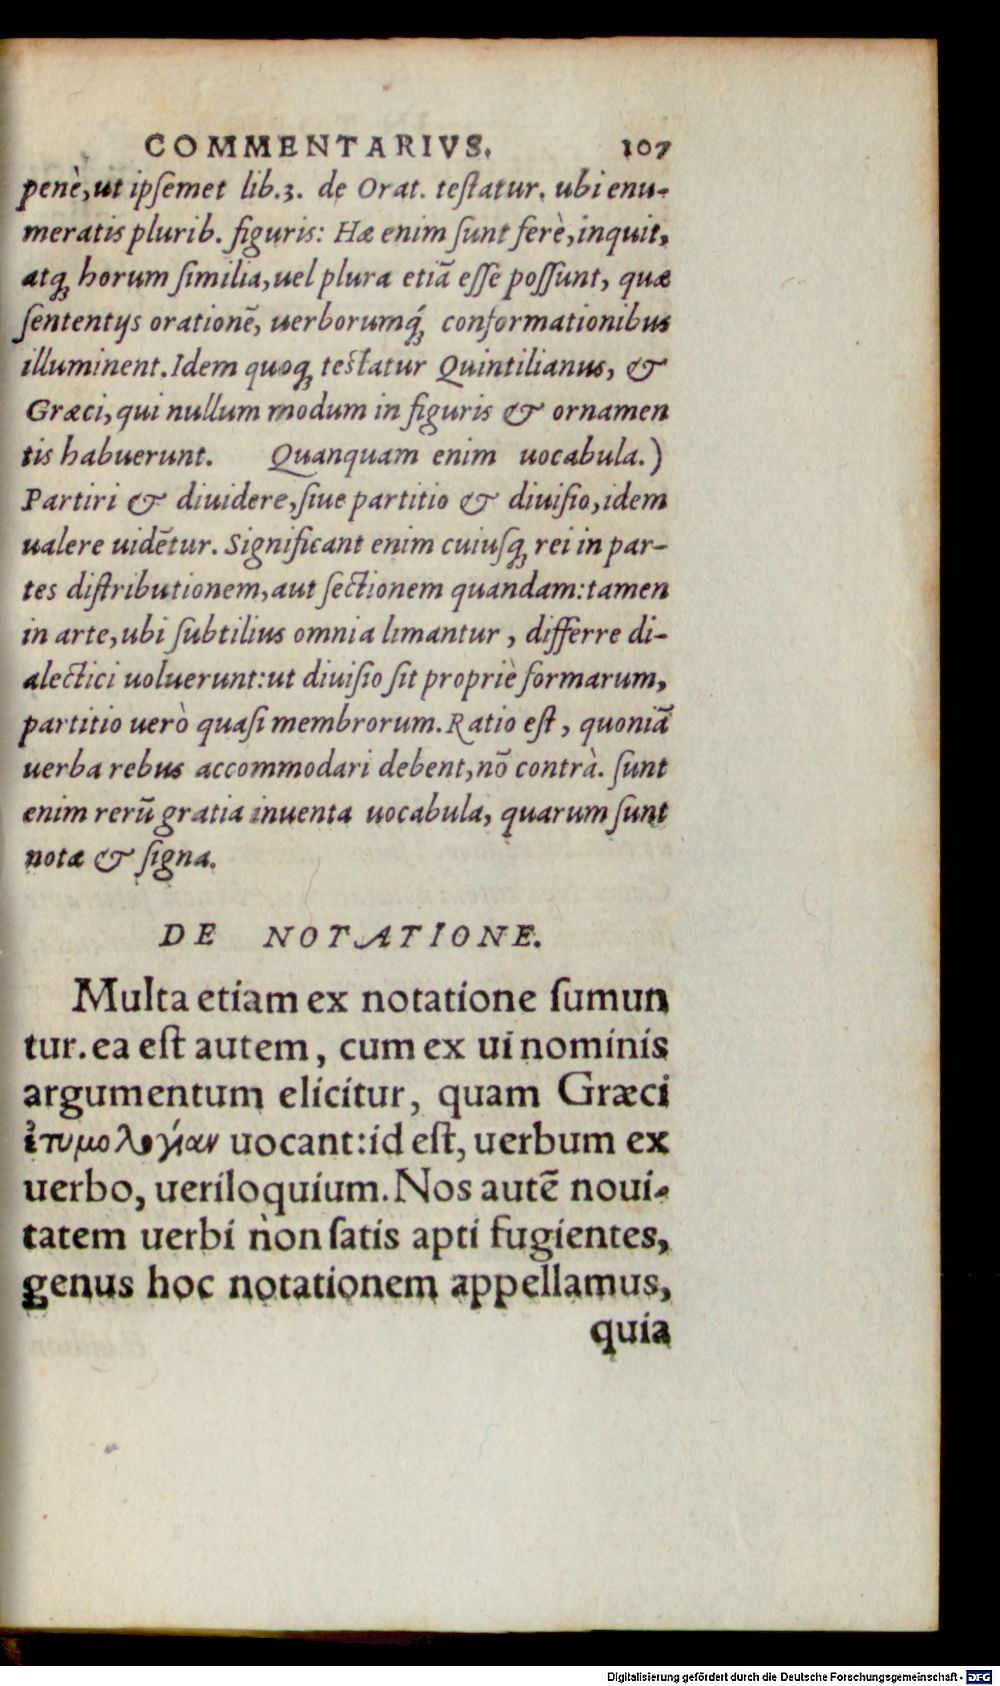 COMMENTARIVS. 107
penè, ut ipſemet lib.3. de Orat. teſtatur. ubi enu-
meratis plurib. figuris: Hæ enim ſunt ferè, inquit,
atq; horum ſimilia, uel plura etiā eſſe poſſunt, quæ
ſententijs orationē, uerborumq́; conformationibus
illuminent. Idem quoq; teſtatur Quintilianus, &
Græci, qui nullum modum in figuris & ornamen
tis habuerunt. Quanquam enim uocabula.)
Partiri & diuidere, ſiue partitio & diuiſio, idem
ualere uidētur. Significant enim cuiuſq; rei in par-
tes diſtributionem, aut ſectionem quandam: tamen
in arte, ubi ſubtilius omnia limantur, differre di-
alectici uoluerunt: ut diuiſio ſit propriè formarum,
partitio uerò quaſi membrorum. Ratio eſt, quoniā
uerba rebus accommodari debent, nō contrà. ſunt
enim rerū gratia inuenta uocabula, quarum ſunt
notæ & ſigna.
DE NOTATIONE.
Multa etiam ex notatione ſumun
tur. ea eſt autem, cum ex ui nominis
argumentum elicitur, quam Græci
ἐτυμολογίαν uocant: id eſt, uerbum ex
uerbo, ueriloquium. Nos autē noui-
tatem uerbi non ſatis apti fugientes,
genus hoc notationem appellamus,
quia
Digitalisierung gefördert durch die Deutsche Forschungsgemeinschaft - DFG